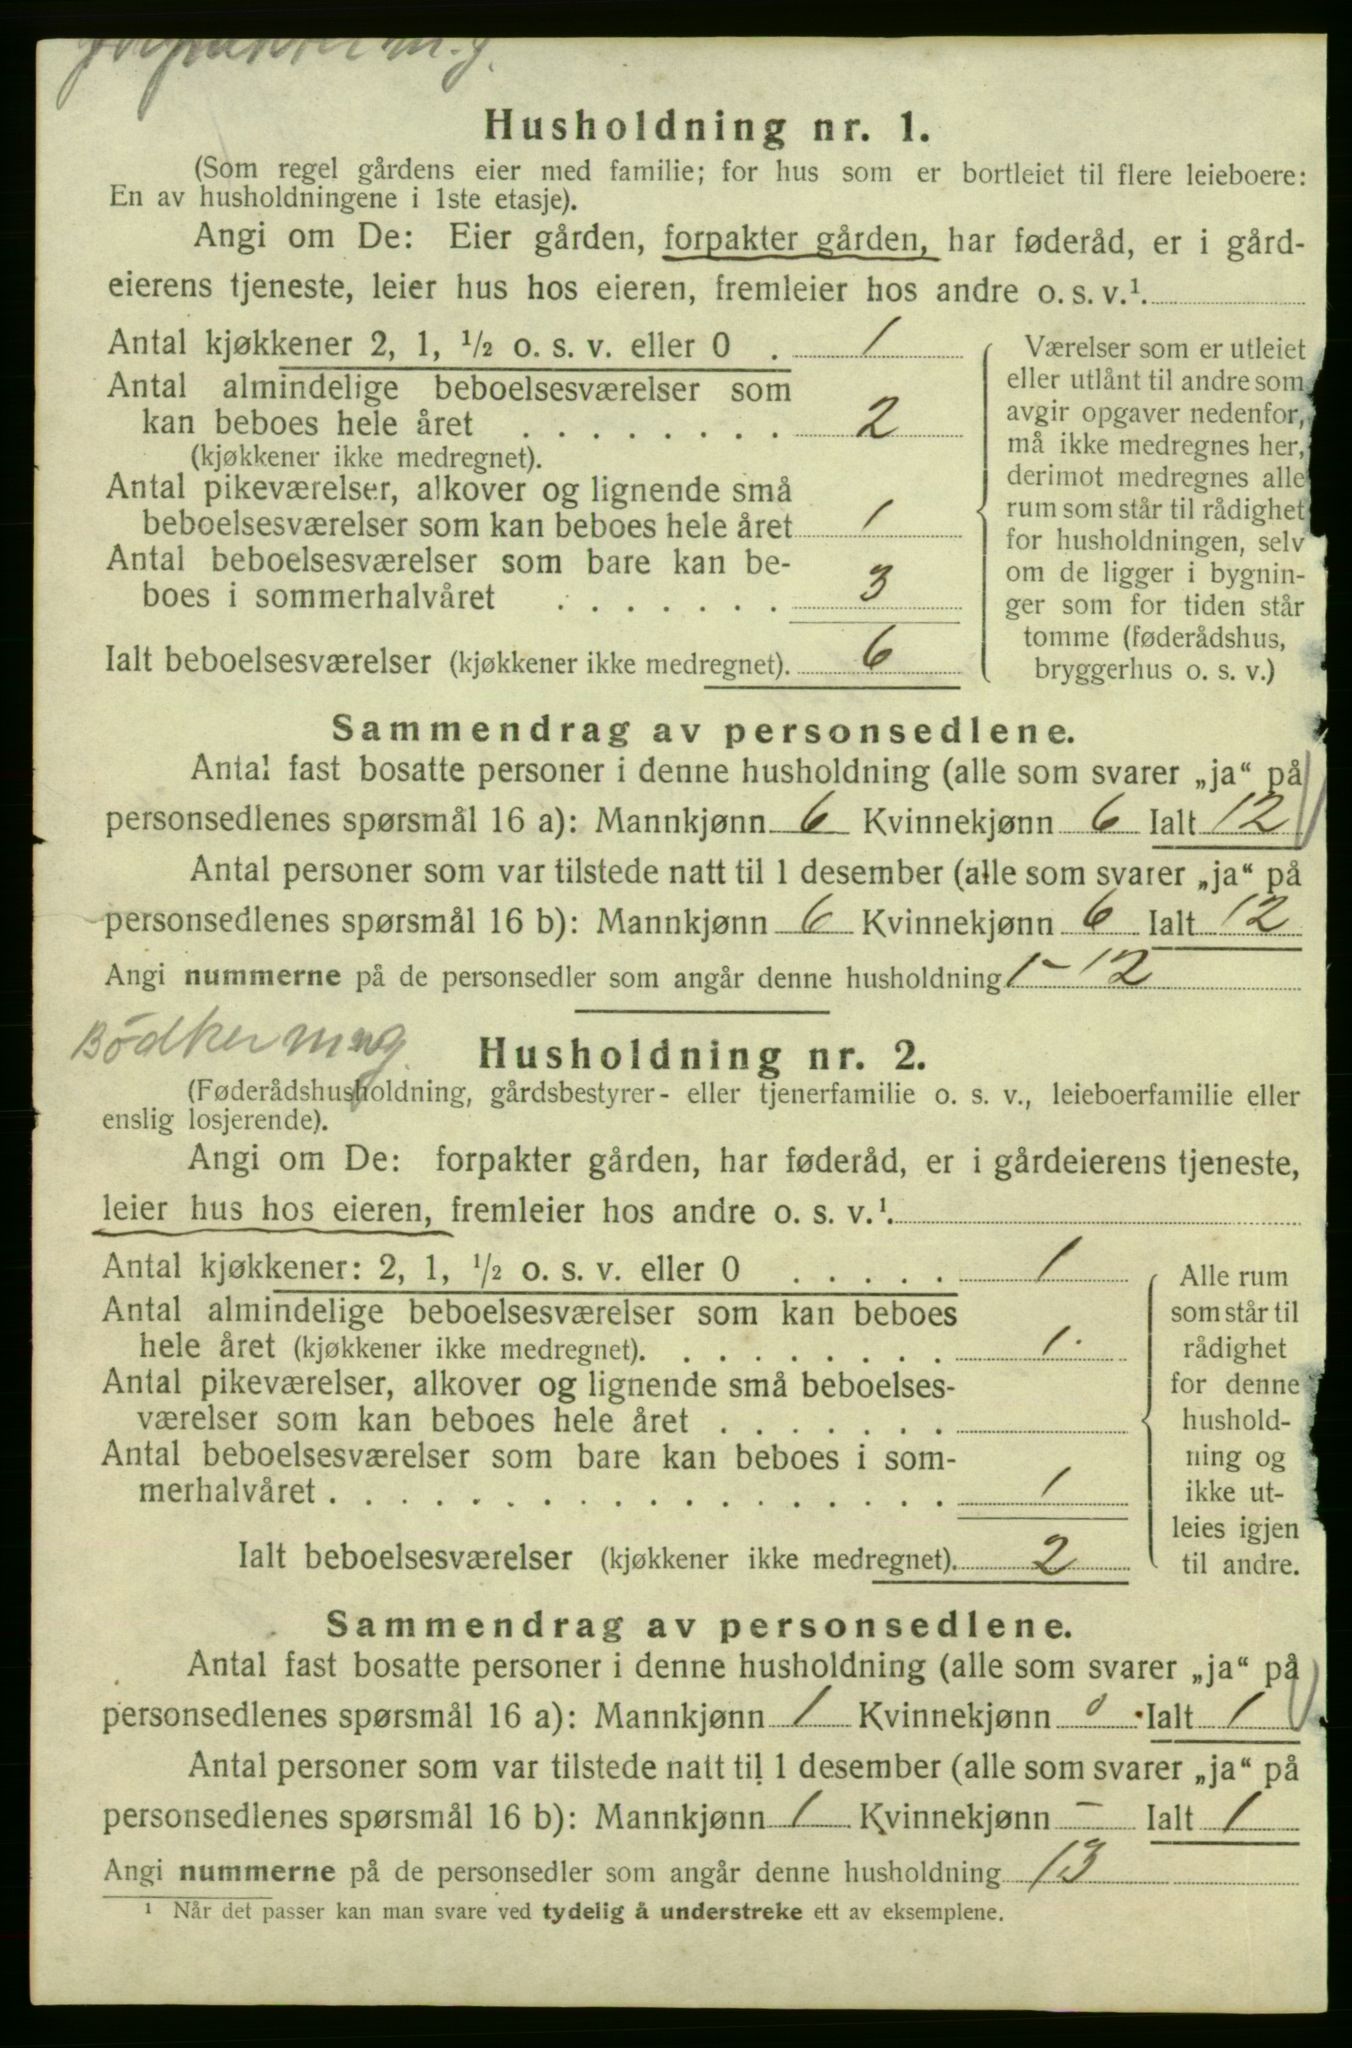 m. g.
Husholdning nr. 1.
(Som regel gårdens eier med familie; for hus som er bortleiet til flere leieboere:
En av husholdningene i 1ste etasje).
Angi om De: Eier gården, forpakter gården, har føderåd, er i gård-
eierens tjeneste, leier hus hos eieren, fremleier hos andre o. s. v.¹.
Antal kjøkkener 2, 1, ½ o. s. v. eller 0 . 1
Antal almindelige beboelsesværelser som
kan beboes hele året . . . . . . . . 2
(kjøkkener ikke medregnet).
Antal pikeværelser, alkover og lignende små
beboelsesværelser som kan beboes hele året 1
Antal beboelsesværelser som bare kan be-
boes i sommerhalvåret . . . . . . . 3
Ialt beboelsesværelser (kjøkkener ikke medregnet). 6
Værelser som er utleiet
eller utlånt til andre som
avgir opgaver nedenfor,
må ikke medregnes her,
derimot medregnes alle
rum som står til rådighet
for husholdningen, selv
om de ligger i bygnin-
ger som for tiden står
tomme (føderådshus,
bryggerhus o. s. v.)
Sammendrag av personsedlene.
Antal fast bosatte personer i denne husholdning (alle som svarer „ja“ på
personsedlenes spørsmål 16 a): Mannkjønn 6 Kvinnekjønn 6 Ialt 12
Antal personer som var tilstede natt til 1 desember (alle som svarer „ja“ på
personsedlenes spørsmål 16 b): Mannkjønn 6 Kvinnekjønn 6 Ialt 12
Angi nummerne på de personsedler som angår denne husholdning 1-12
Bödker
Husholdning nr. 2.
(Føderådshusholdning, gårdsbestyrer- eller tjenerfamilie o. s. v., leieboerfamilie eller
enslig losjerende).
Angi om De: forpakter gården, har føderåd, er i gårdeierens tjeneste,
leier hus hos eieren, fremleier hos andre o. s. v.¹.
Antal kjøkkener: 2, 1, ½ o. s. v. eller 0 . . . . . 1
Antal almindelige beboelsesværelser som kan beboes
hele året (kjøkkener ikke medregnet). . . . . . . . . 1.
Antal pikeværelser, alkover og lignende små beboelses-
værelser som kan beboes hele året . . . . . . .
Antal beboelsesværelser som bare kan beboes i som-
merhalvåret . . . . . . . . . . . . . . . . . . 1
Ialt beboelsesværelser (kjøkkener ikke medregnet). 2
Alle rum
som står til
rådighet
for denne
hushold-
ning og
ikke ut-
leies igjen
til andre.
Sammendrag av personsedlene.
Antal fast bosatte personer i denne husholdning (alle som svarer „ja“ på
personsedlenes spørsmål 16 a): Mannkjønn 1 Kvinnekjønn 0 Ialt 1
Antal personer som var tilstede natt til 1 desember (alle som svarer „ja“ på
personsedlenes spørsmål 16 b): Mannkjønn 1 Kvinnekjønn – Ialt 1
Angi nummerne på de personsedler som angår denne husholdning 13
¹ Når det passer kan man svare ved tydelig å understreke ett av eksemplene.